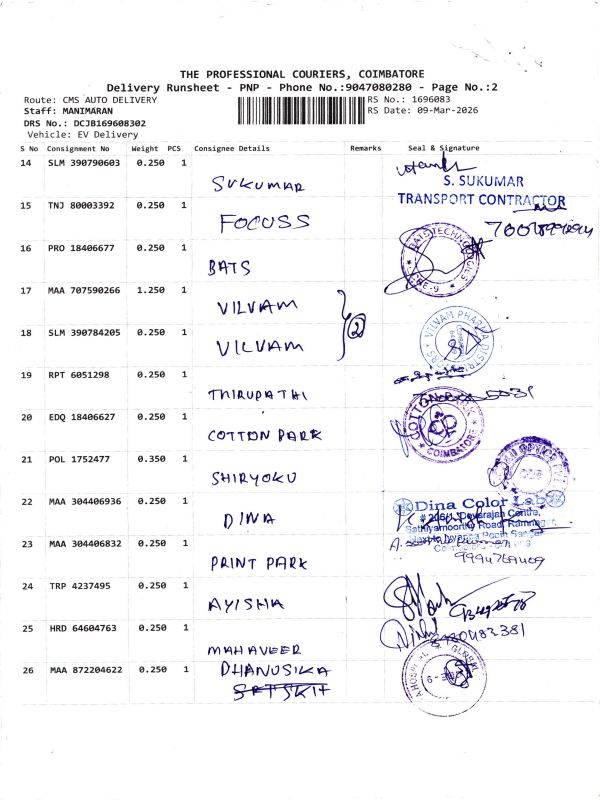 THE PROFESSIONAL COURIERS, COIMBATORE
Delivery Runsheet - PNP - Phone No.:9047080280 - Page No.:2
Route: CMS AUTO DELIVERY
RS No.: 1696083
Staff: MANIMARAN
RS Date: 09-Mar-2026
DRS No.: DCJB169608302
Vehicle: EV Delivery
S No Consignment No Weight PCS Consignee Details Remarks Seal & Signature
14 SLM 390790603 0.250 1
SUKUMAR
S. SUKUMAR
TRANSPORT CONTRACTOR
15 TNJ 80003392 0.250 1
FOCUSS
16 PRO 18406677 0.250 1
BATS
BATS TECHNOLOGIES
17 MAA 707590266 1.250 1
VILVAM
2
18 SLM 390784205 0.250 1
VILVAM
VILVAM PHARMA DISTRIBUTORS
19 RPT 6051298 0.250 1
THIRUPATHI
20 EDQ 18406627 0.250 1
COTTON PARK
COTTON PARK
CP
COIMBATORE
21 POL 1752477 0.350 1
SHIRYOKU
22 MAA 304406936 0.250 1
DINA
Dina Color Lab
Devarajan Centre,
Sathiyamoorthy Road, Ramnagar,
23 MAA 304406832 0.250 1
PRINT PARK
24 TRP 4237495 0.250 1
AYISHA
25 HRD 64604763 0.250 1
MAHAVEER
26 MAA 872204622 0.250 1
DHANUSIKA